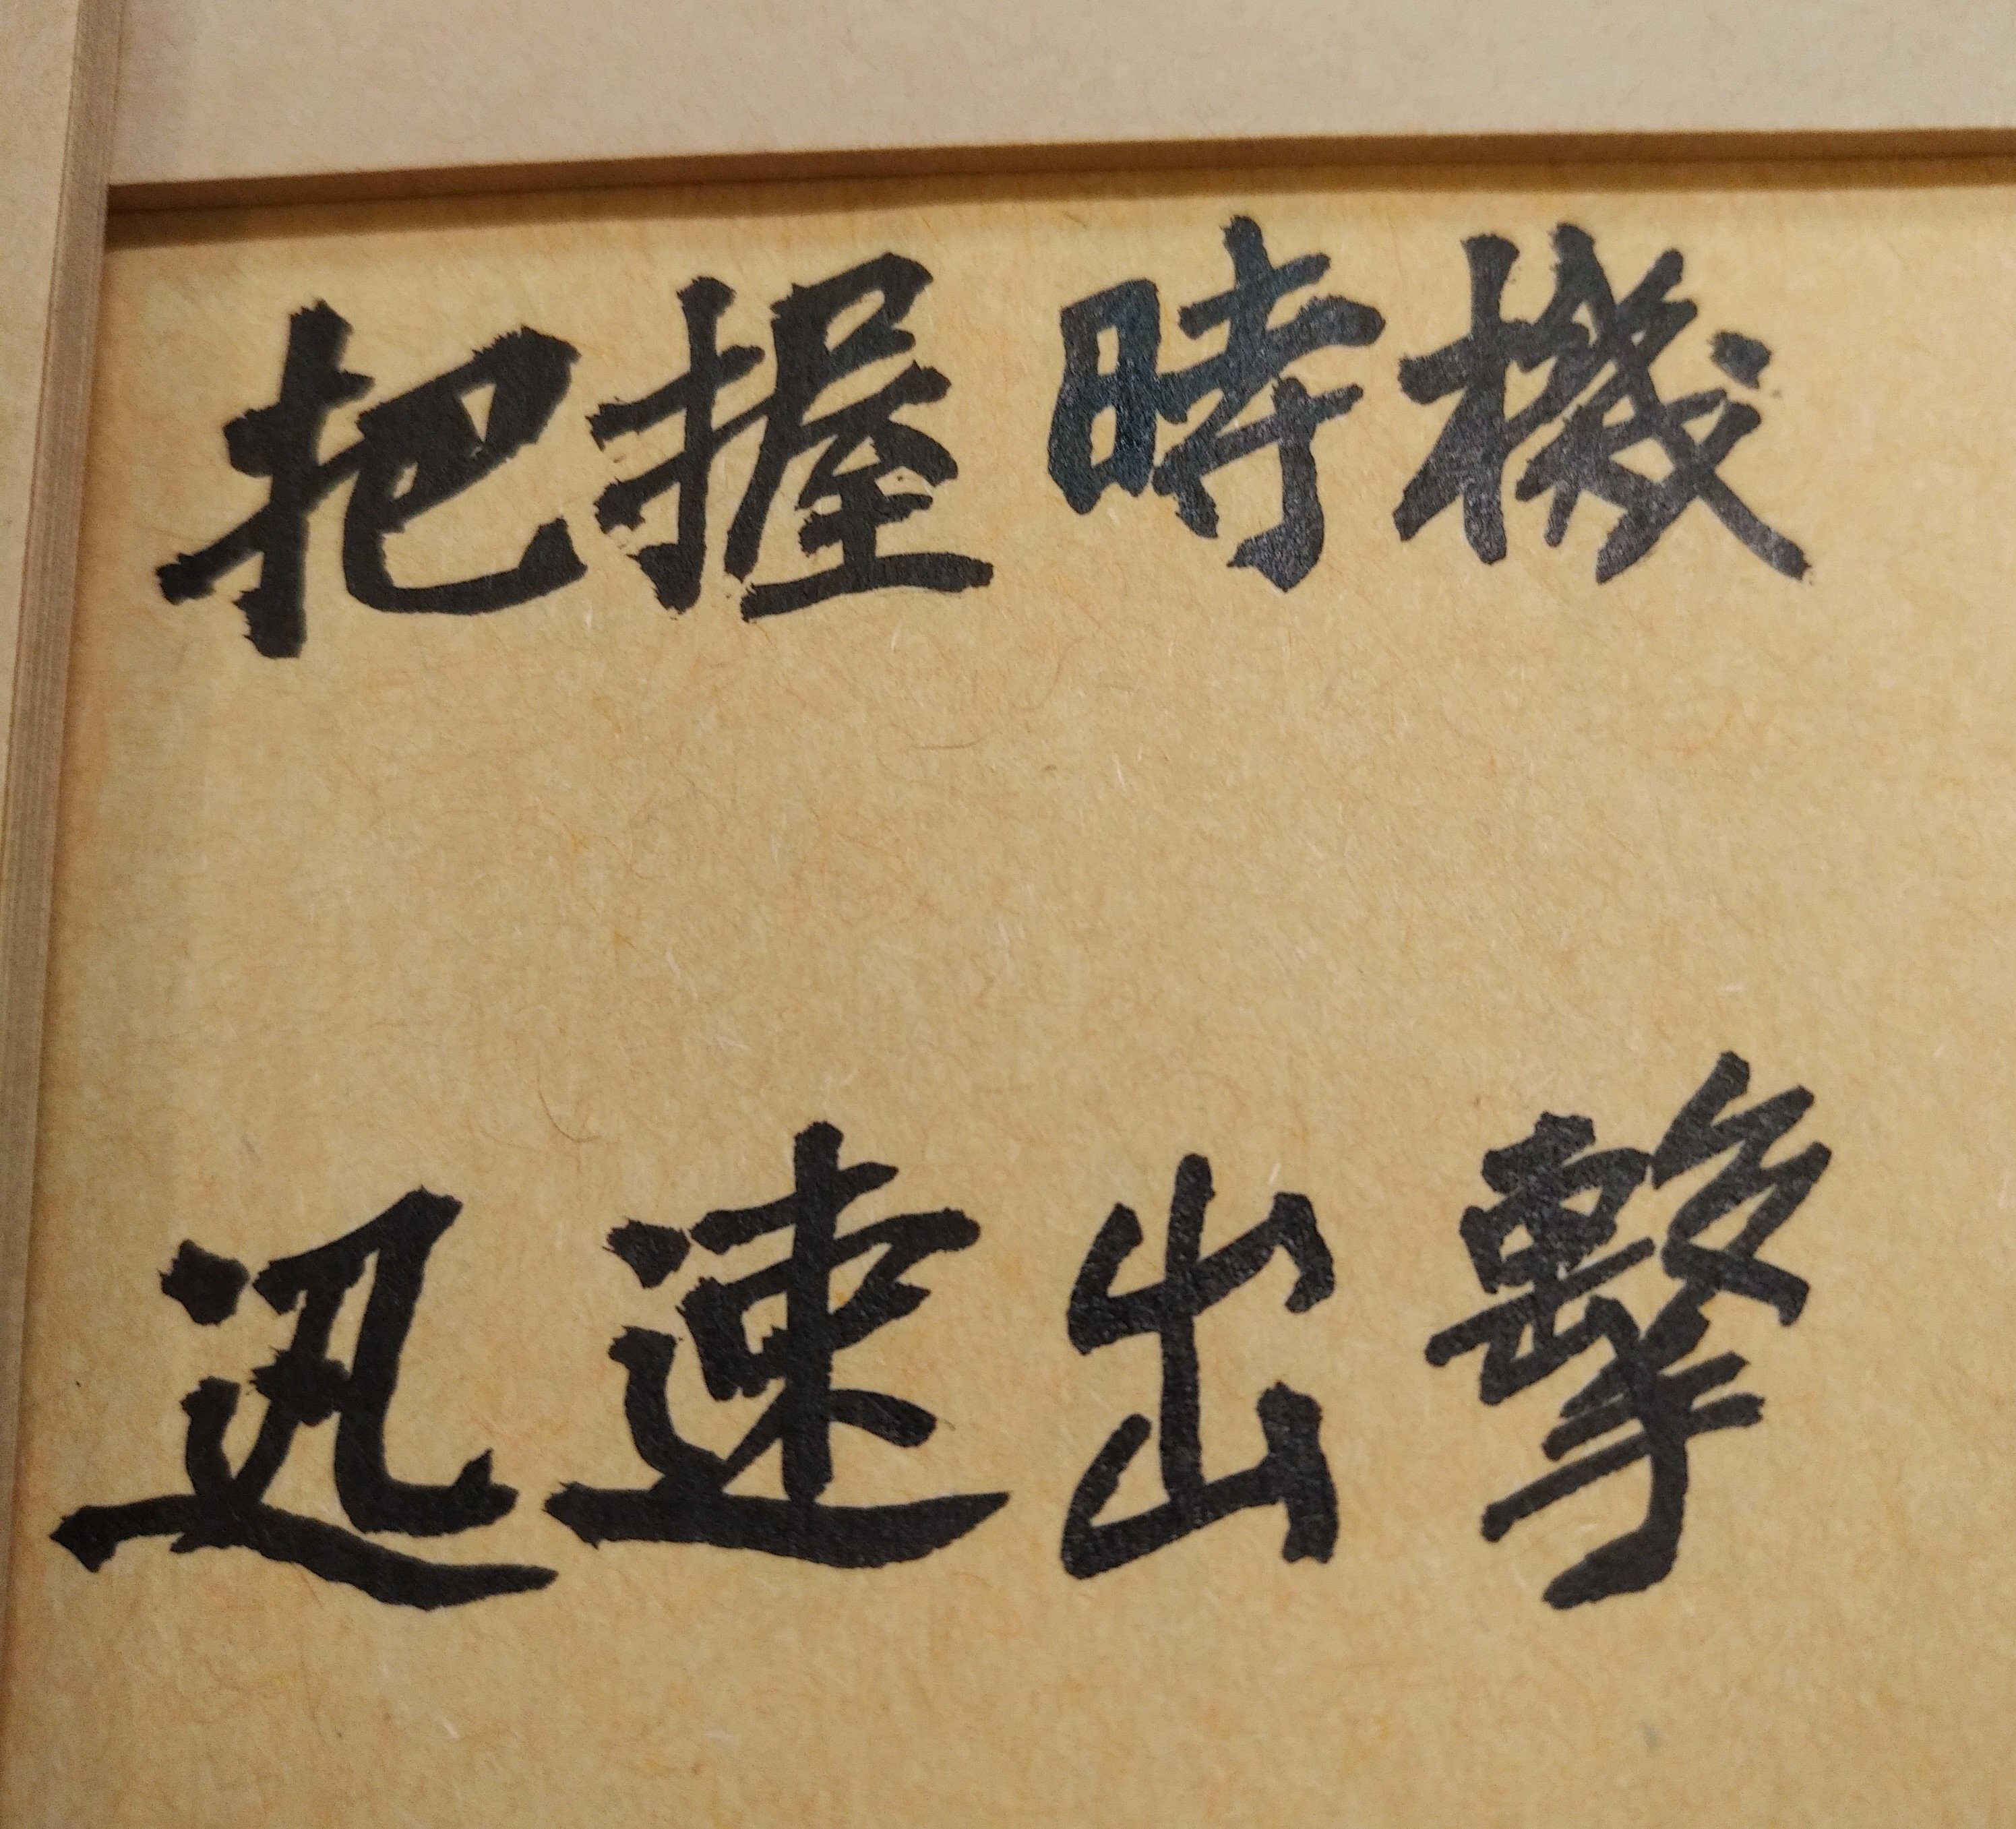 把握時機
迅速出擊